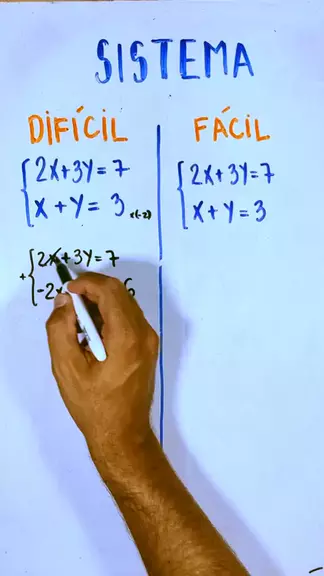 SISTEMA
DIFÍCIL
2X+3Y=7
X+Y=3 x(-2)
+ 2X+3Y=7
-2x 6
FÁCIL
2X+3Y=7
X+Y=3